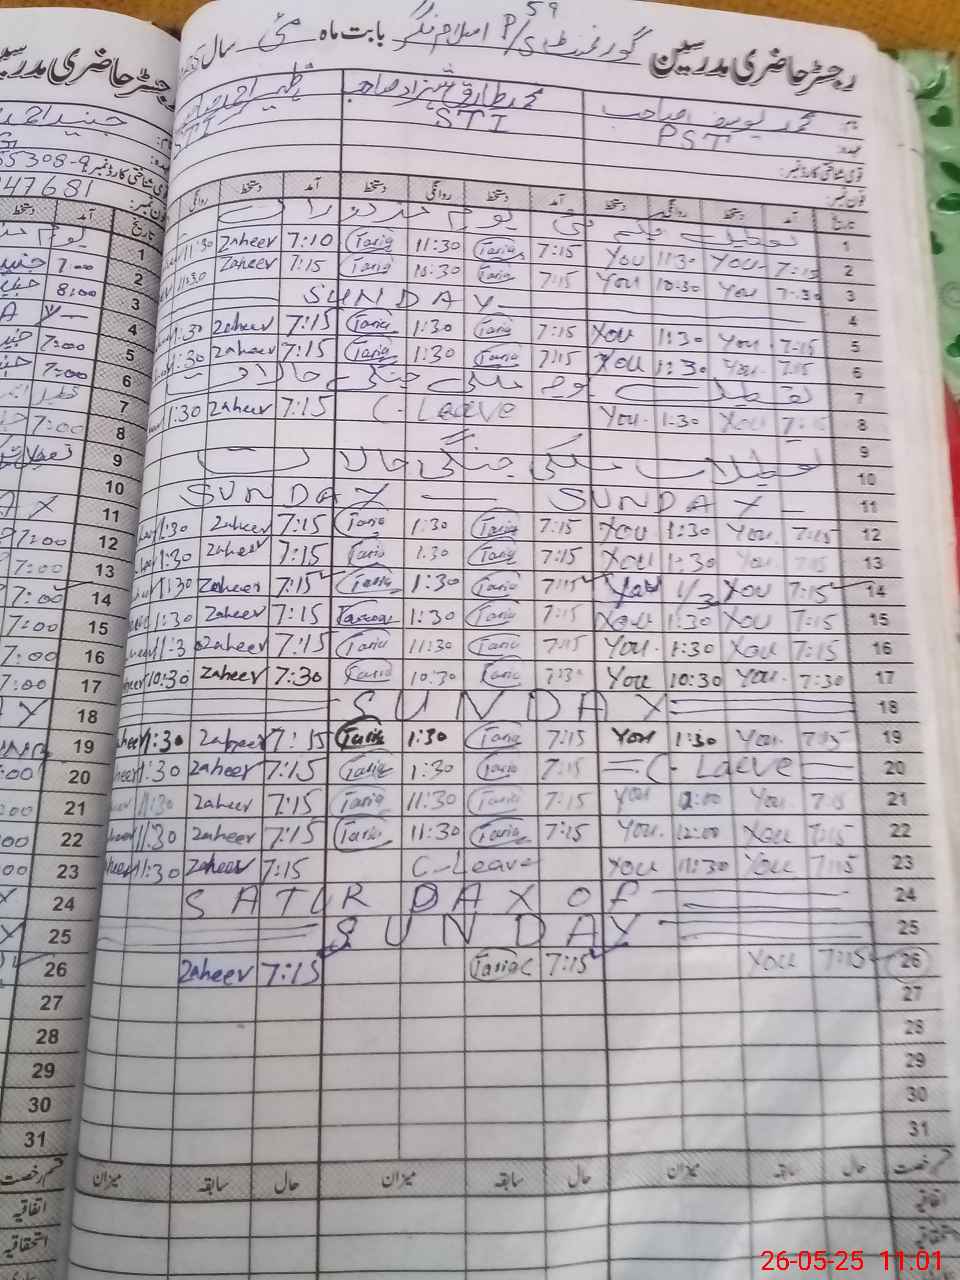 رجسٹر حاضری مدرسین گورنمنٹ P/S اسلام نگر بابت ماہ مئی سال
59
نام: محمد یوسف صاحب محمد طارق شہزاد صاحب ظہیر احمد
عہدہ: PST STI STI
قومی شناختی کارڈ نمبر:
فون نمبر:
تاریخ آمد دستخط روانگی دستخط آمد دستخط روانگی دستخط آمد دستخط روانگی
1 تعطیل یکم مئی یوم مزدوراں
2 7:15 You 11:30 You 7:15 Tariq 11:30 Tariq 7:10 Zaheer 11:30
3 7:30 You 10:30 You 7:15 Tariq 10:30 Tariq 7:15 Zaheer 11:30
4 SUNDAY
5 7:15 You 1:30 You 7:15 Tariq 1:30 Tariq 7:15 Zaheer 1:30
6 7:15 You 1:30 You 7:15 Tariq 1:30 Tariq 7:15 Zaheer 1:30
7 تعطیل بوجہ ملکی جنگی حالات
8 7:15 You 1:30 You C-Leave 7:15 Zaheer 1:30
9
10 تعطیلات ملکی جنگی حالات
11 SUNDAY SUNDAY
12 7:15 You 1:30 You 7:15 Tariq 1:30 Tariq 7:15 Zaheer 1:30
13 7:15 You 1:30 You 7:15 Tariq 1:30 Tariq 7:15 Zaheer 1:30
14 7:15 You 1/3 You 7:15 Tariq 1:30 Tariq 7:15 Zaheer 1:30
15 7:15 You 1:30 You 7:15 Tariq 1:30 7:15 Zaheer 1:30
16 7:15 You 1:30 You 7:15 Tariq 11:30 Tariq 7:15 Zaheer 11:3
17 7:30 You 10:30 You 7:30 Tariq 10:30 Tariq 7:30 Zaheer 10:30
18 SUNDAY
19 7:15 You 1:30 You 7:15 Tariq 1:30 Tariq 7:15 Zaheer 1:30
20 C-Laeve 7:15 Tariq 1:30 Tariq 7:15 Zaheer 1:30
21 7:15 You 12:00 You 7:15 Tariq 11:30 Tariq 7:15 Zaheer 11:30
22 7:15 You 12:00 You 7:15 Tariq 11:30 Tariq 7:15 Zaheer 11:30
23 7:15 You 11:30 You C-Leave 7:15 Zaheer 11:30
24 SATURDAY OF
25 SUNDAY
26 7:15 You 7:15 Tariq 7:15 Zaheer
27
28
29
30
31
قسم رخصت حال سابقہ میزان حال سابقہ میزان حال سابقہ میزان
اتفاقیہ
استحقاقیہ
رجسٹر حاضری مدرسین
جنید احمد
55308-9
قومی شناختی کارڈ نمبر
47681
فون نمبر:
تاریخ آمد دستخط
1
2 7:00
3 8:00
4
5 7:00
6 7:00
7
8 7:00
9
10
11
12 7:00
13 7:00
14 7:00
15 7:00
16 7:00
17 7:00
18
19
20 :00
21 :00
22 00
23 00
24
25
26
27
28
29
30
31
قسم رخصت
اتفاقیہ
استحقاقیہ
26-05-25 11.01